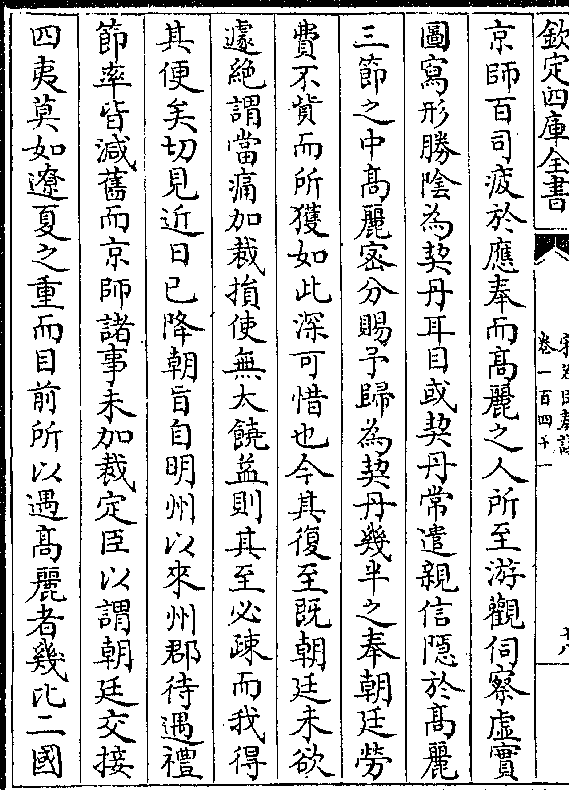 欽定四庫全書
卷一百四十一
京師百司疲於應奉而髙麗之人所至游觀伺察虛實
圖寫形勝陰為契丹耳目或契丹常遣親信隱於髙麗
三節之中髙麗宻分賜予歸為契丹幾半之奉朝廷勞
費不貲而所獲如此深可惜也今其復至既朝廷未欲
遽絶謂當痛加裁損使無大饒益則其至必疎而我得
其便矣切見近日已降朝旨自明州以來州郡待遇禮
節率皆減舊而京師諸事未加裁定臣以謂朝廷交接
四夷莫如遼夏之重而目前所以遇髙麗者幾比二國